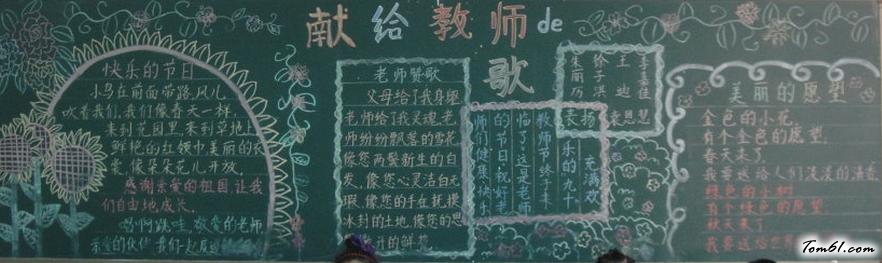 献给教师de
歌
快乐的节日
小鸟在前面带路,风儿
吹着我们,我们像春天一样,
来到花园里,来到草地上
鲜艳的红领巾美丽的衣
裳,像朵朵花儿开放。
感谢亲爱的祖国,让我
们自由地成长。
唱啊跳哇,敬爱的老师
亲爱的伙伴我们一起
老师赞歌
父母给了我身躯
老师给了我灵魂,老
师纷纷飘落的雪花
像您两鬓新生的白
发,像您心灵洁白无
瑕,像您的手在抚摸
冰封的土地,像您的思
开的鲜花
充满欢
乐的九十
教师节终于来
临了,这是老师
的节日,祝好老
师们健康快乐
王迪
表扬
美丽的愿望
金色的小花,
有个金色的愿望,
春天来了
我要送给人们
绿色的小树
有个绿色的愿望
秋天来了
我要
Tom61.com